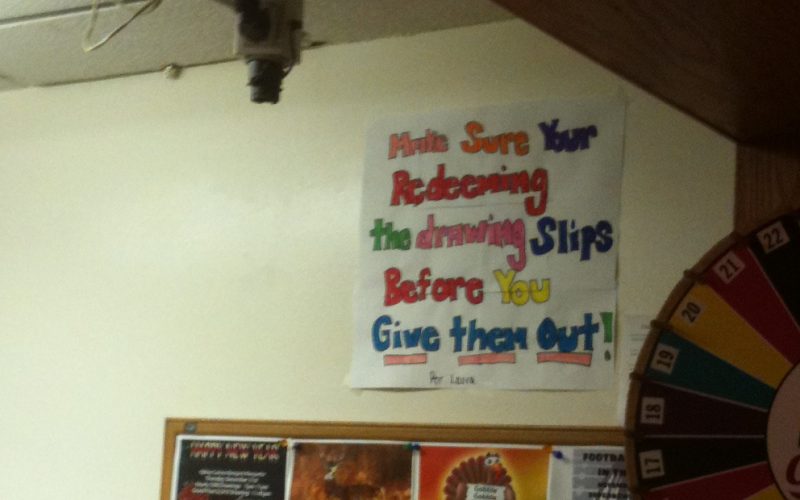 Make Sure Your
Redeeming
the drawing Slips
Before You
Give them Out!
Per Laura
HAPPY NEW YEAR
FOOTBA
IN TH
22
21
20
19
18
17